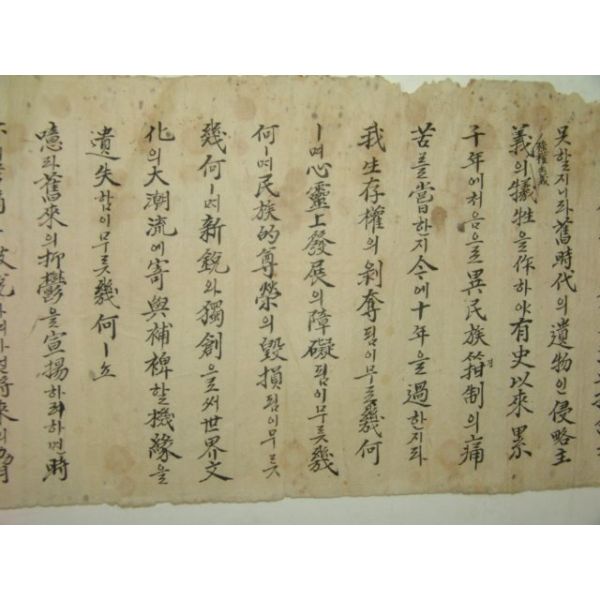 못할지니라舊時代의遺物인侵略主
義의犧牲을作하야有史以來累
强權主義
千年에처음으로異民族箝制의痛
苦를當한지今에十年을過한지라
我生存權의剝奪됨이무릇幾何
ㅣ며心靈上發展의障礙됨이무릇幾
何ㅣ며民族的尊榮의毁損됨이무릇
幾何ㅣ며新銳와獨創으로써世界文
化의大潮流에寄與補裨할機緣을
遺失함이무릇幾何ㅣ뇨
噫라舊來의抑鬱을宣揚하려하면時